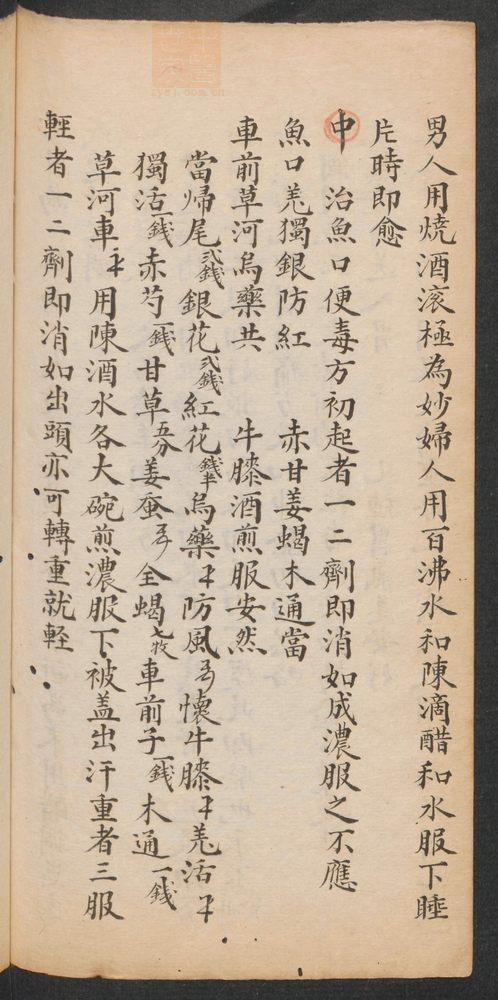 男人用燒酒滚極為妙婦人用百沸水和陳滴醋和水服下睡
片時即愈
中 治魚口便毒方初起者一二劑即消如成濃服之不應
魚口羌獨銀防紅 赤甘姜蝎木通當
車前草河烏藥共 牛膝酒煎服安然
當帰尾弍錢銀花弍錢紅花錢半烏藥防風懷牛膝羌活
獨活一錢赤芍一錢甘草五分姜蚕全蝎七枚車前子一錢木通一錢
草河車用陳酒水各大碗煎濃服下被盖出汗重者三服
輕者一二劑即消如出頭亦可轉重就輕